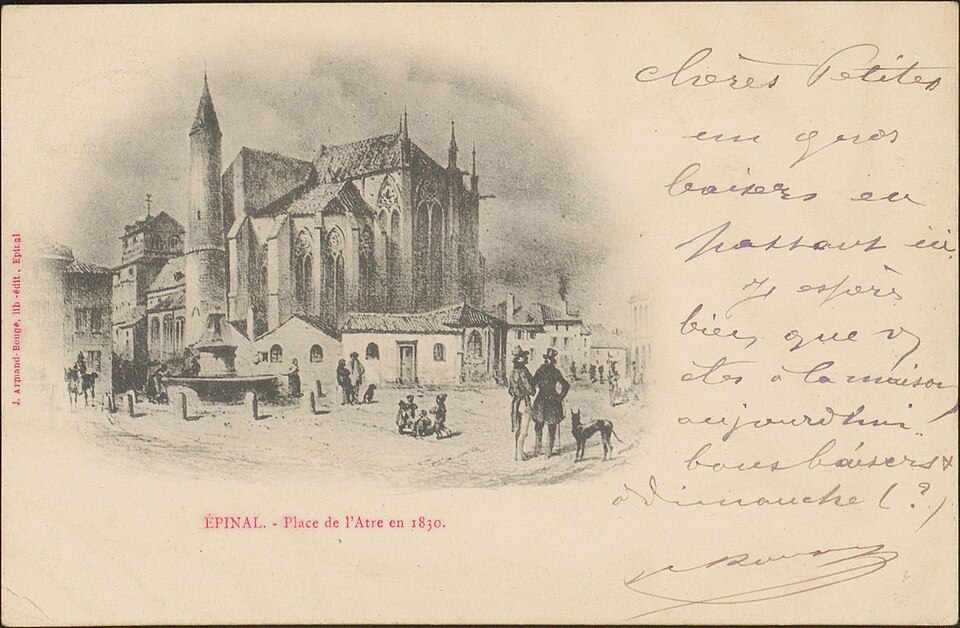 J. Armand-Rouge, lib.-édit., Epinal
ÉPINAL. - Place de l'Atre en 1830.
chères Petites
un gros
baisers en
passant ici
j'espère
bien que v/
êtes à la maison
aujourd'hui.
bons baisers &
à Dimanche (?)